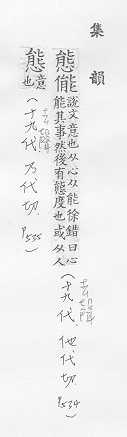 集韻
態㑷 說文意也从心从能徐錯曰心能其事然後有態度也或从人(十九代.他代切.P534
態 意也(十九代.乃代切.P535